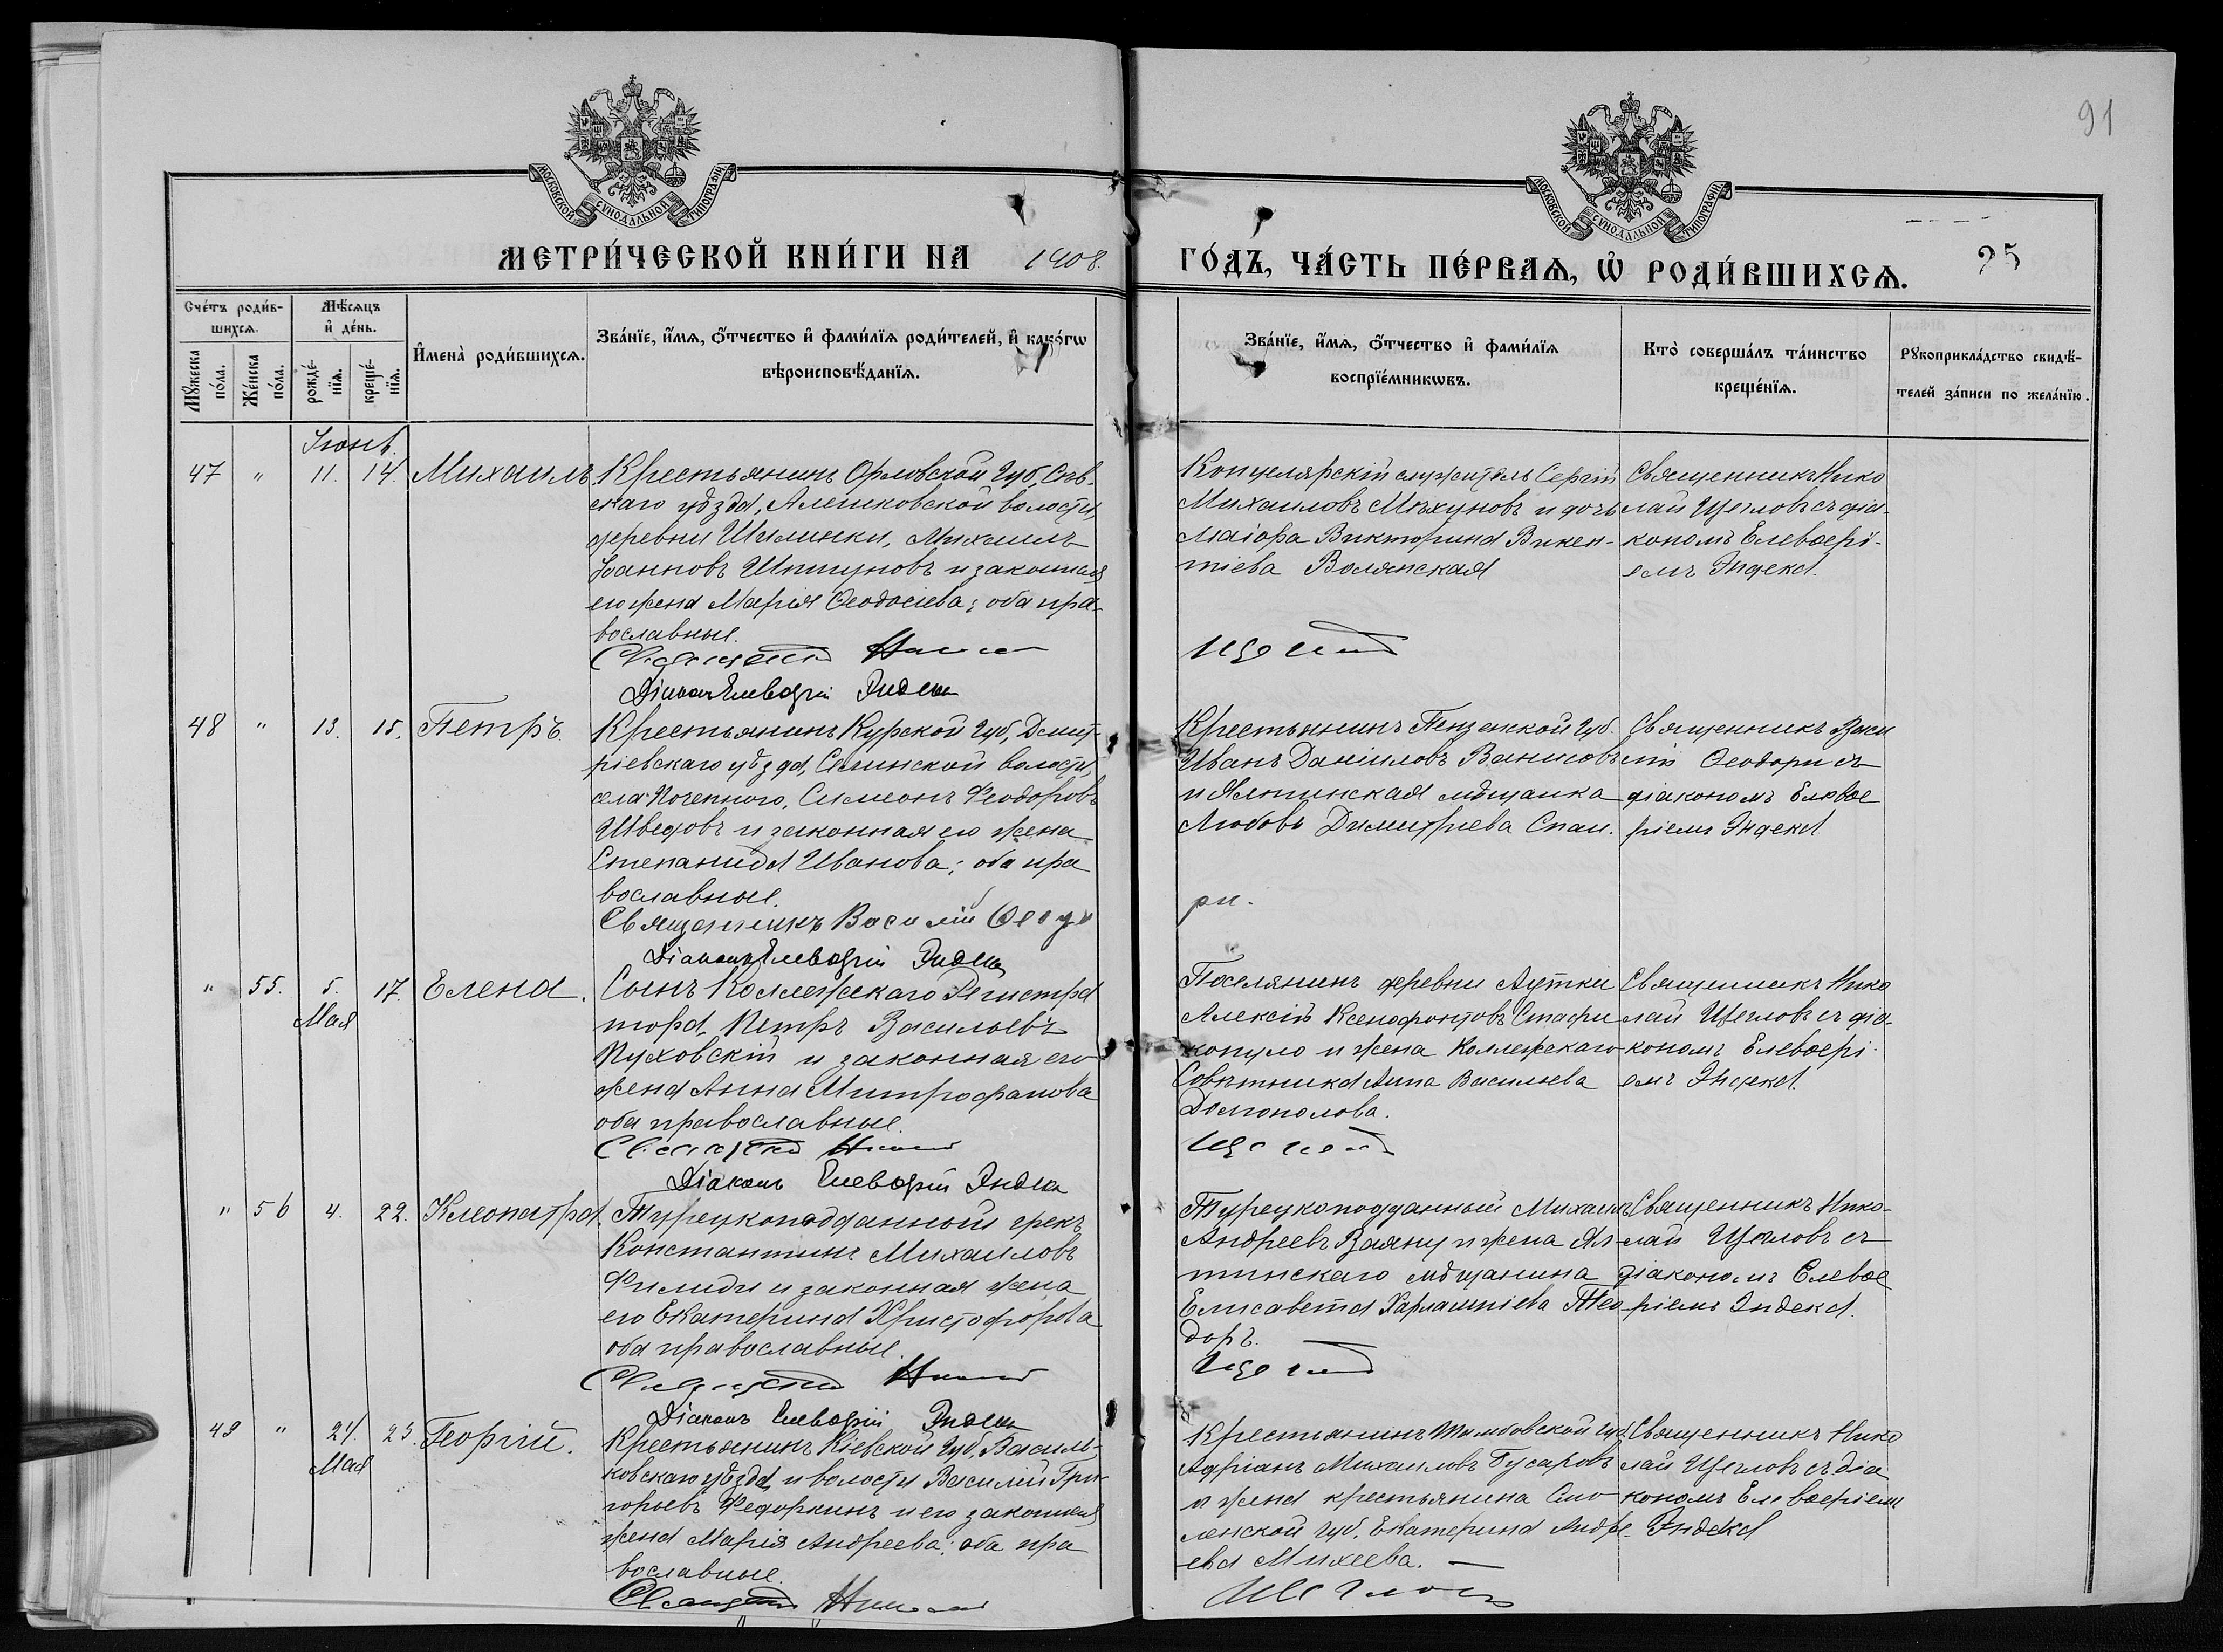 91
МОСКОВСКОЙ СѴНОДАЛЬНОЙ ТИПОГРАФІИ
МОСКОВСКОЙ СѴНОДАЛЬНОЙ ТИПОГРАФІИ
МЕТРИ́ЧЕСКОЙ КНИ́ГИ НА 1908.
ГО́ДЪ, ЧА́СТЬ ПЕ́РВАѦ, Ѡ҆ РОДИ́ВШИХСѦ.
25
Сче́тъ роди́в-
шихсѧ.
Мѣ́сѧцъ
и҆ де́нь.
Мꙋ́жеска
по́ла.
Же́нска
по́ла.
рожде́-
нїѧ.
креще́-
нїѧ.
И҆мена̀ роди́вшихсѧ.
Зва́нїе, и҆́мѧ, ѻ҆́тчество и҆ фами́лїѧ роди́телей, и҆ како́гѡ
вѣроисповѣ́данїѧ.
Зва́нїе, и҆́мѧ, ѻ҆́тчество и҆ фами́лїѧ
воспрїе́мникѡвъ.
Кто̀ соверша́лъ та́инство
креще́нїѧ.
Рꙋкоприкла́дство свидѣ́-
телей за́писи по жела́нїю.
Іюнь.
47 " 11. 14. Михаилъ
Крестьянинъ Орловской Губ, Сѣв-
скаго уѣзда, Алешковской волости,
деревни Шилинки, Михаилъ
Іоанновъ Шпилуновъ и законная
его жена Марія Ѳеодосіева; оба пра-
вославные.
Священник Николай
Діаконъ Елевѳерій Индекса
Канцелярскій служитель Сергій
Михаиловъ Мѣхуновъ и дочь
Маіора Викторина Викен-
тіева Волянская
Щеглов
Священникъ Нико
лай Щегловъ съ діа-
кономъ Елевѳері-
емъ Индекса.
48 " 13. 15. Петръ
Крестьянинъ Курской Губ, Дмит-
ріевскаго уѣзда, Селинской волости,
села Поченного, Симеонъ Феодоровъ
Шведовъ и законная его жена
Степанида Иванова; оба пра
вославные.
Священникъ Василій Ѳеодо
Діаконъ Елевѳерій Индекса
Крестьянинъ Пензенской Губ.
Иванъ Даніиловъ Ванисовъ
и Ялтинская мѣщанка
Любовь Димитріева Спаи.
ри.
Священникъ Васи
лій Ѳеодори съ
діакономъ Елевѳе
ріемъ Индекса
" 55. 5. 17. Елена.
Мая
Сынъ Коллежскаго Регистра
тора Петръ Васильевъ
Пуховскій и законная его
жена Анна Митрофанова
оба православные.
Священник Николай
Діаконъ Елевѳерій Индекса
Поселянинъ деревни Аутки
Алексій Ксенофонтовъ Стафи
копуло и жена Коллежскаго
Совѣтника Анна Васильева
Домонолова.
Щеглов
Священникъ Нико
лай Щегловъ съ діа-
кономъ Елевѳері-
емъ Индекса.
" 56 4. 22. Клеопатра.
Турецкоподданный грекъ
Константинъ Михаиловъ
Филиди и законная жена
его Екатерина Христофорова
оба православные.
Священник Николай
Діаконъ Елевѳерій Индекса
Турецкоподданный Михаилъ
Андреевъ Заяну и жена Ял-
тинскаго мѣщанина
Елисавета Харлампіева Тео
доръ.
Щеглов
Священникъ Нико-
лай Щегловъ съ
діакономъ Елевѳе
ріемъ Индекса.
49 " 21. 23. Георгій.
Мая
Крестьянинъ Кіевской Губ, Василь-
ковскаго уѣзда, и волости Василій Гри-
горьевъ Федоркинъ и его законная
жена Марія Андреева; оба пра
вославные.
Священник Николай
Крестьянинъ Тамбовской губ.
Адріанъ Михаиловъ Гусаровъ
и жена крестьянина Смо
ленской губ. Екатерина Андре
ева Михеева.
Щеглов
Священникъ Нико
лай Щегловъ съ діа
кономъ Елевѳеріемъ
Индекса